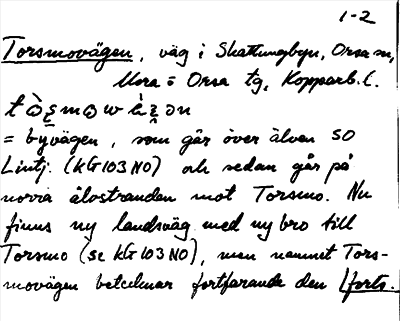 1-2
Torsmovägen, väg i Skattungbyn, Orsa sn,
Mora o Orsa tg, Kopparb. l.
= byvägen, som går över älven SO
Lintj. (KG103NO) och sedan går på
norra älvstranden mot Torsmo. Nu
finns ny landsväg med ny bro till
Torsmo (se KG103NO), men namnet Tors-
movägen betecknar fortfarande den / forts.